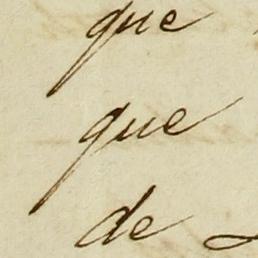 que
que
de